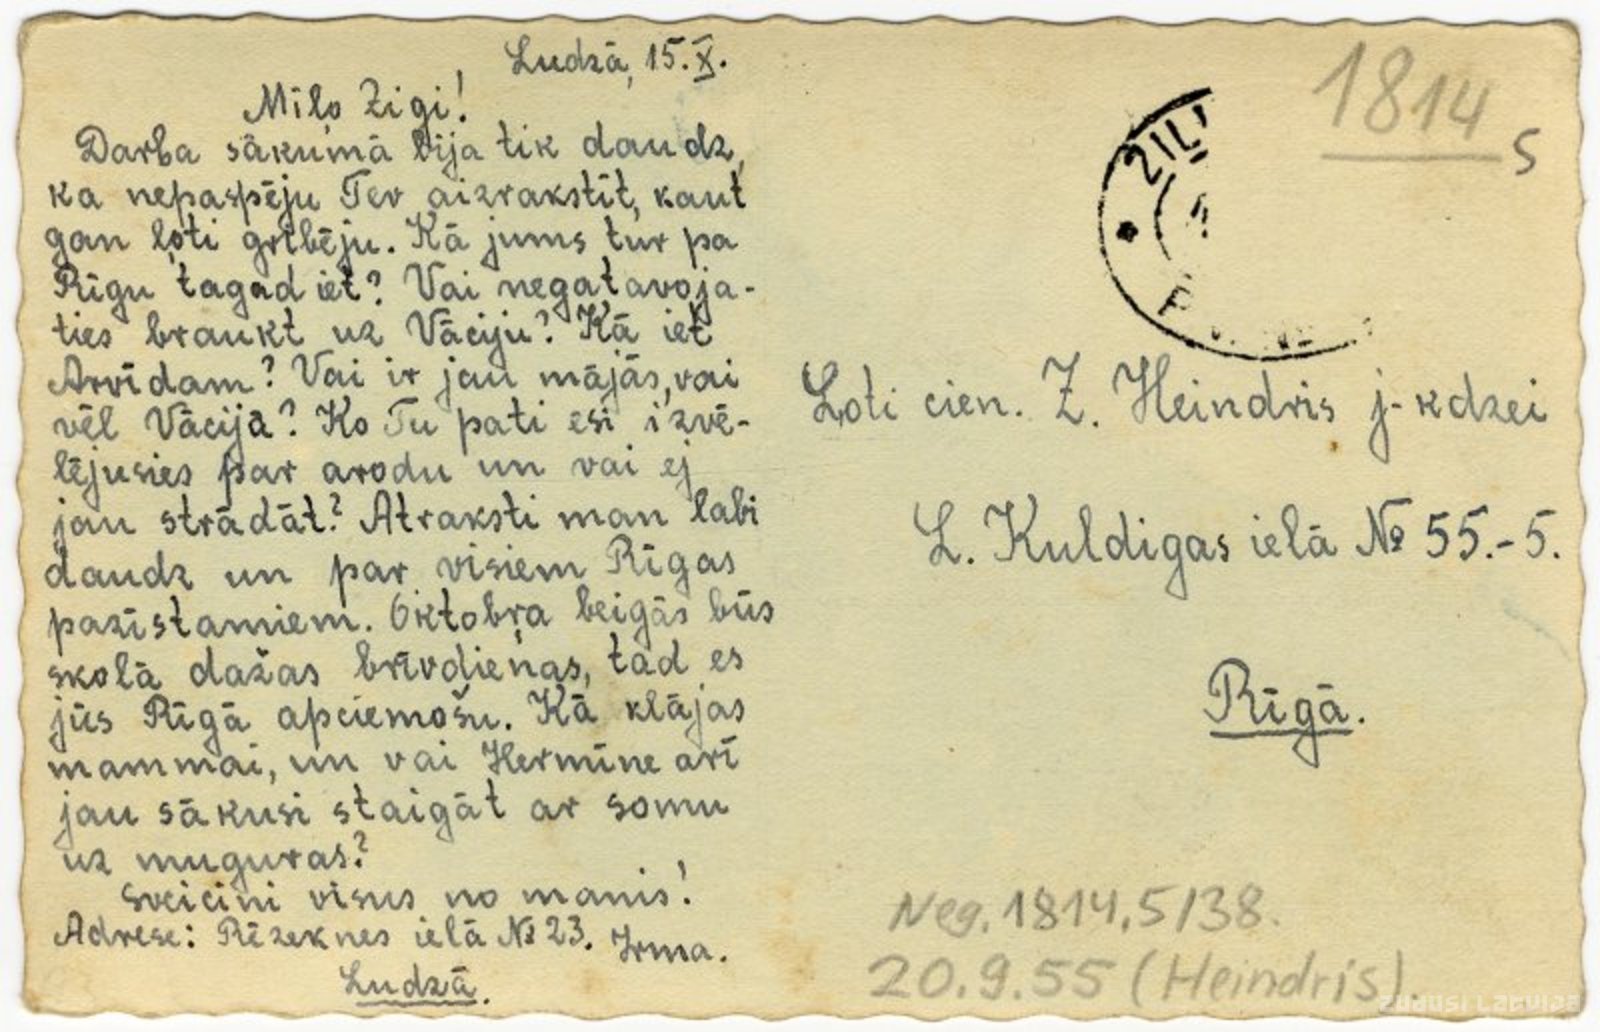 Ludzā, 15.X.
Mīļo Zigi!
Darba sākumā bija tik daudz,
ka nepaspēju Tev aizrakstīt, kaut
gan ļoti gribēju. Kā jums tur pa
Rīgu tagad iet? Vai negatavoja-
ties braukt uz Vāciju? Kā iet
Arvīdam? Vai ir jau mājās, vai
vēl Vācijā? Ko Tu pati esi izvē-
lējusies par arodu un vai ej
jau strādāt? Atraksti man labi
daudz un par visiem Rīgas
pazīstamiem. Oktobŗa beigās būs
skolā dažas brīvdienas, tad es
jūs Rīgā apciemošu. Kā klājas
mammai, un vai Hermīne arī
jau sākusi staigāt ar somu
uz muguras?
Sveicini visus no manis!
Adrese: Rēzeknes ielā № 23. Irma.
Ludzā.
1814
5
ZILU
Ļoti cien. Z. Heindris j-kdzei
L. Kuldigas ielā № 55.-5.
Rīgā.
Neg. 1814.5/38.
20.9.55 (Heindris).
ZUDUSI LATVIJA